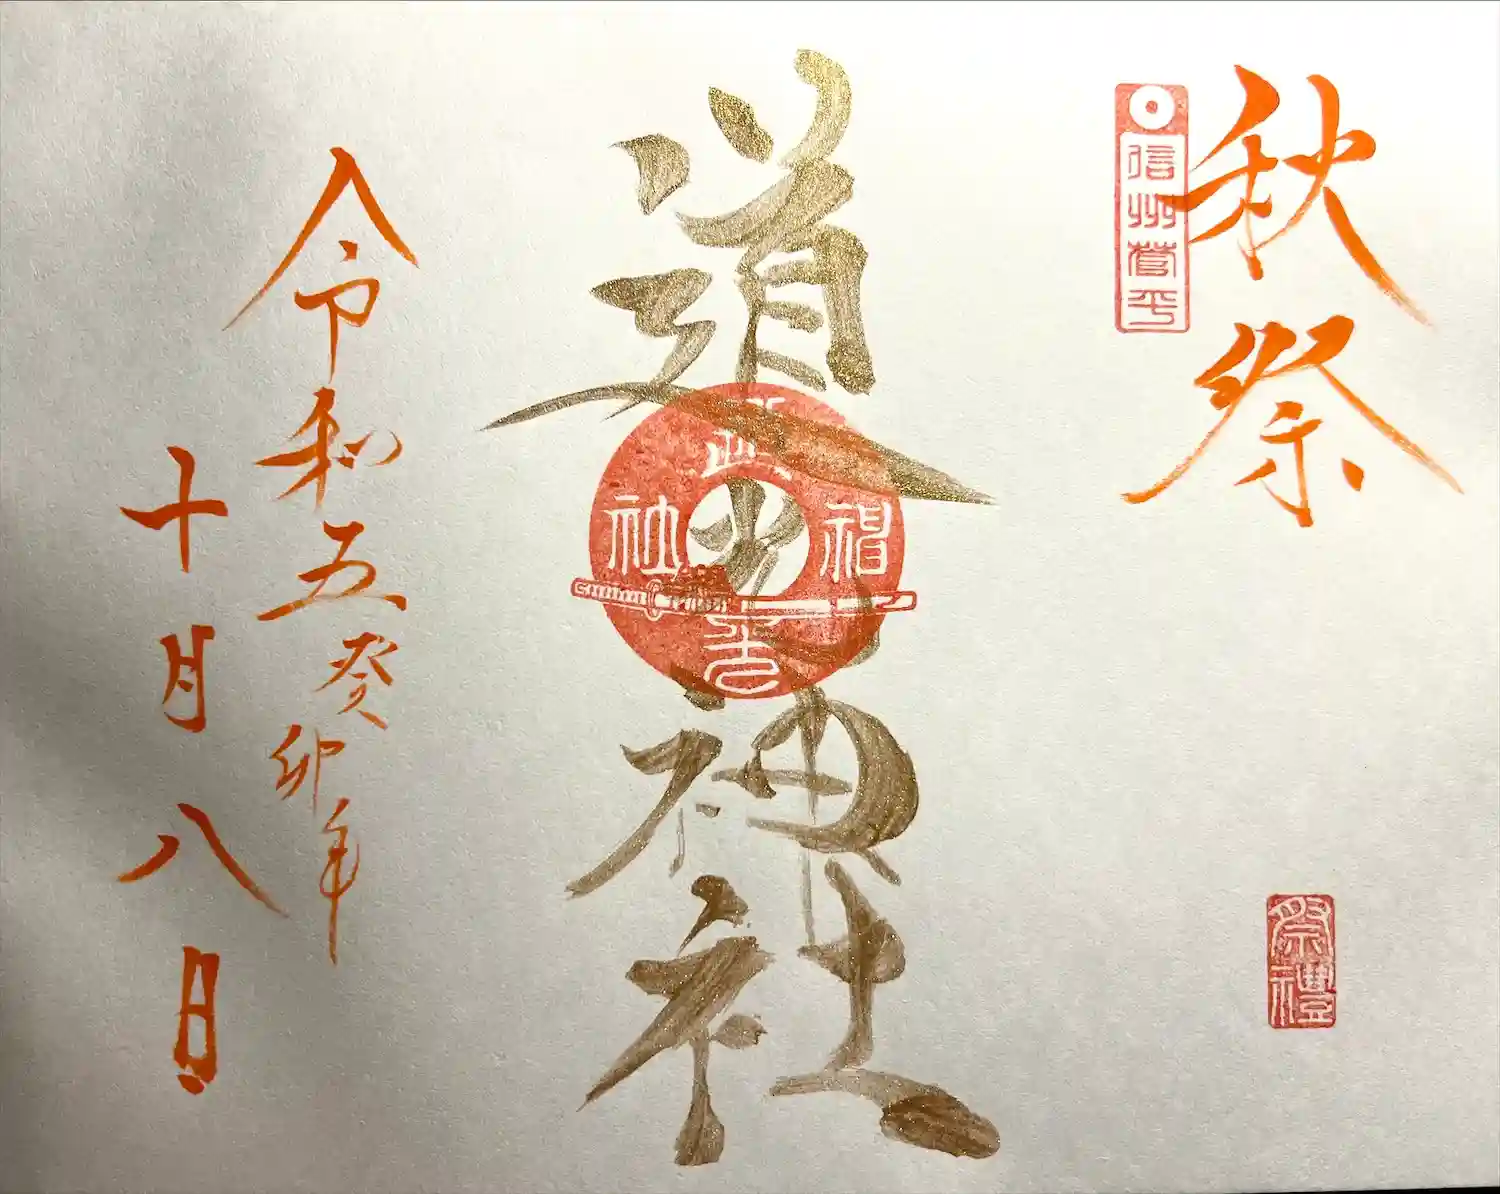 秋祭
信州菅平
祭禮
道神社
祖社
令和五癸卯年
十月八日